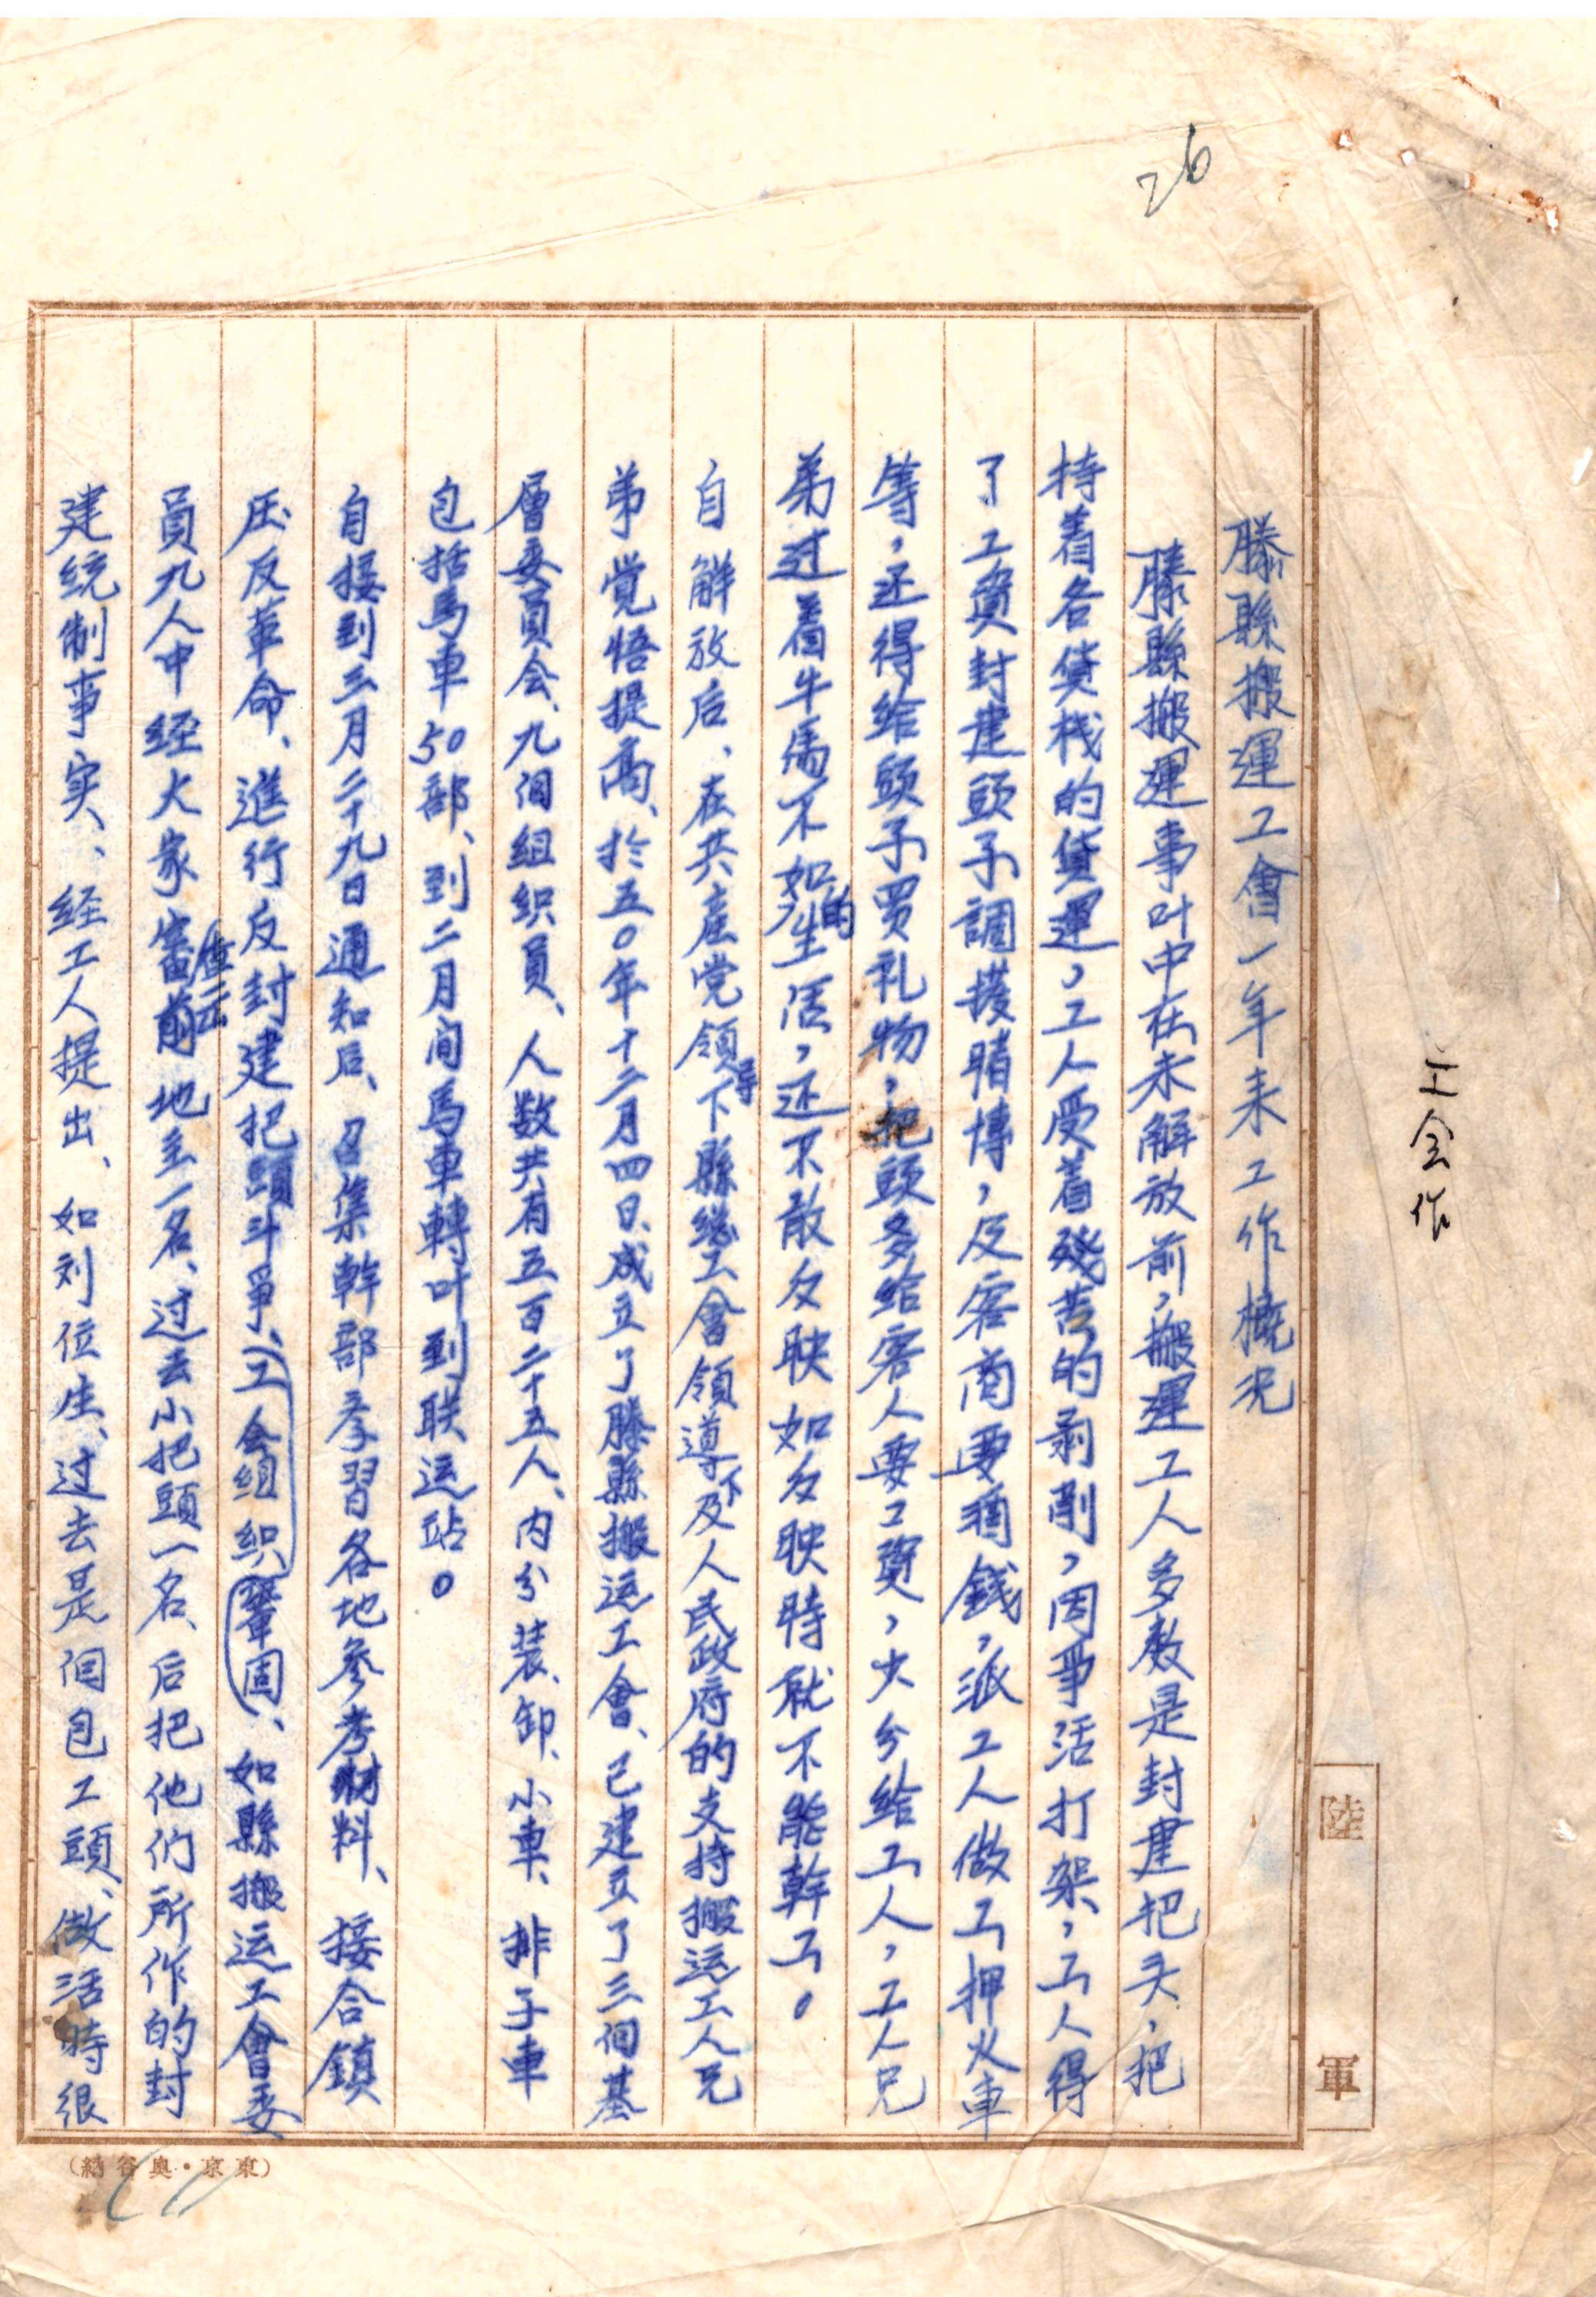 26
工会作
滕縣搬運工會一年来工作概況
滕縣搬運事叶中在未解放前，搬運工人多数是封建把头，把
持着各貨栈的貨運，工人受着殘苦的剥削，因爭活打架，工人得
了工資封建頭子調拨賭博，反客商要酒錢，派工人做工押火車
等，还得给頭子买礼物，把頭多给客人要工資，少分给工人，工人兄
弟过着牛馬不如的生活，还不敢反映如反映時就不能幹工。
自解放后、在共產党領导下縣總工會領導下及人民政府的支持搬运工人兄
弟覚悟提高、於五0年十二月四日、成立了滕縣搬运工會、已建立了三個基
層委員会、九個組织員、人数共有五百二十五人、内分装、卸、小車、排子車
包括馬車50部、到二月间馬車轉叶到联运站。
自接到三月二十九日通知后、召集幹部学習各地参考材料、接合鎮
压反革命、進行反封建把頭斗爭、工会组织鞏固、如縣搬运工會委
員九人中经大家審查出地主一名、过去小把頭一名、后把他们所作的封
建统制事实、经工人提出、如刘位生、过去是個包工頭、做活時很
陸軍
(納谷奥・京東)